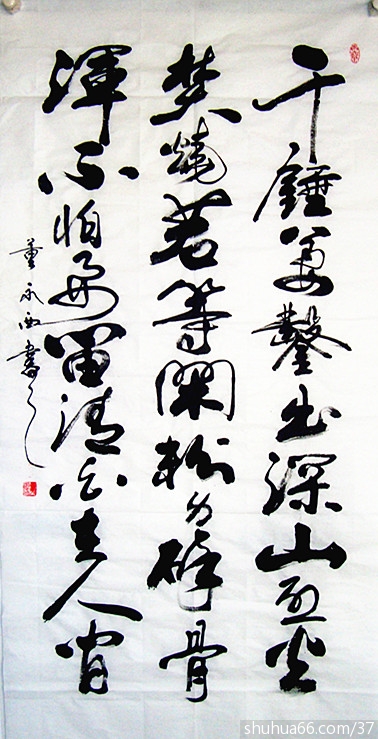 千錘萬鑿出深山烈火
焚燒若等閑粉身碎骨
渾不怕要留清白在人間
董永西書
shuhua66.com/37